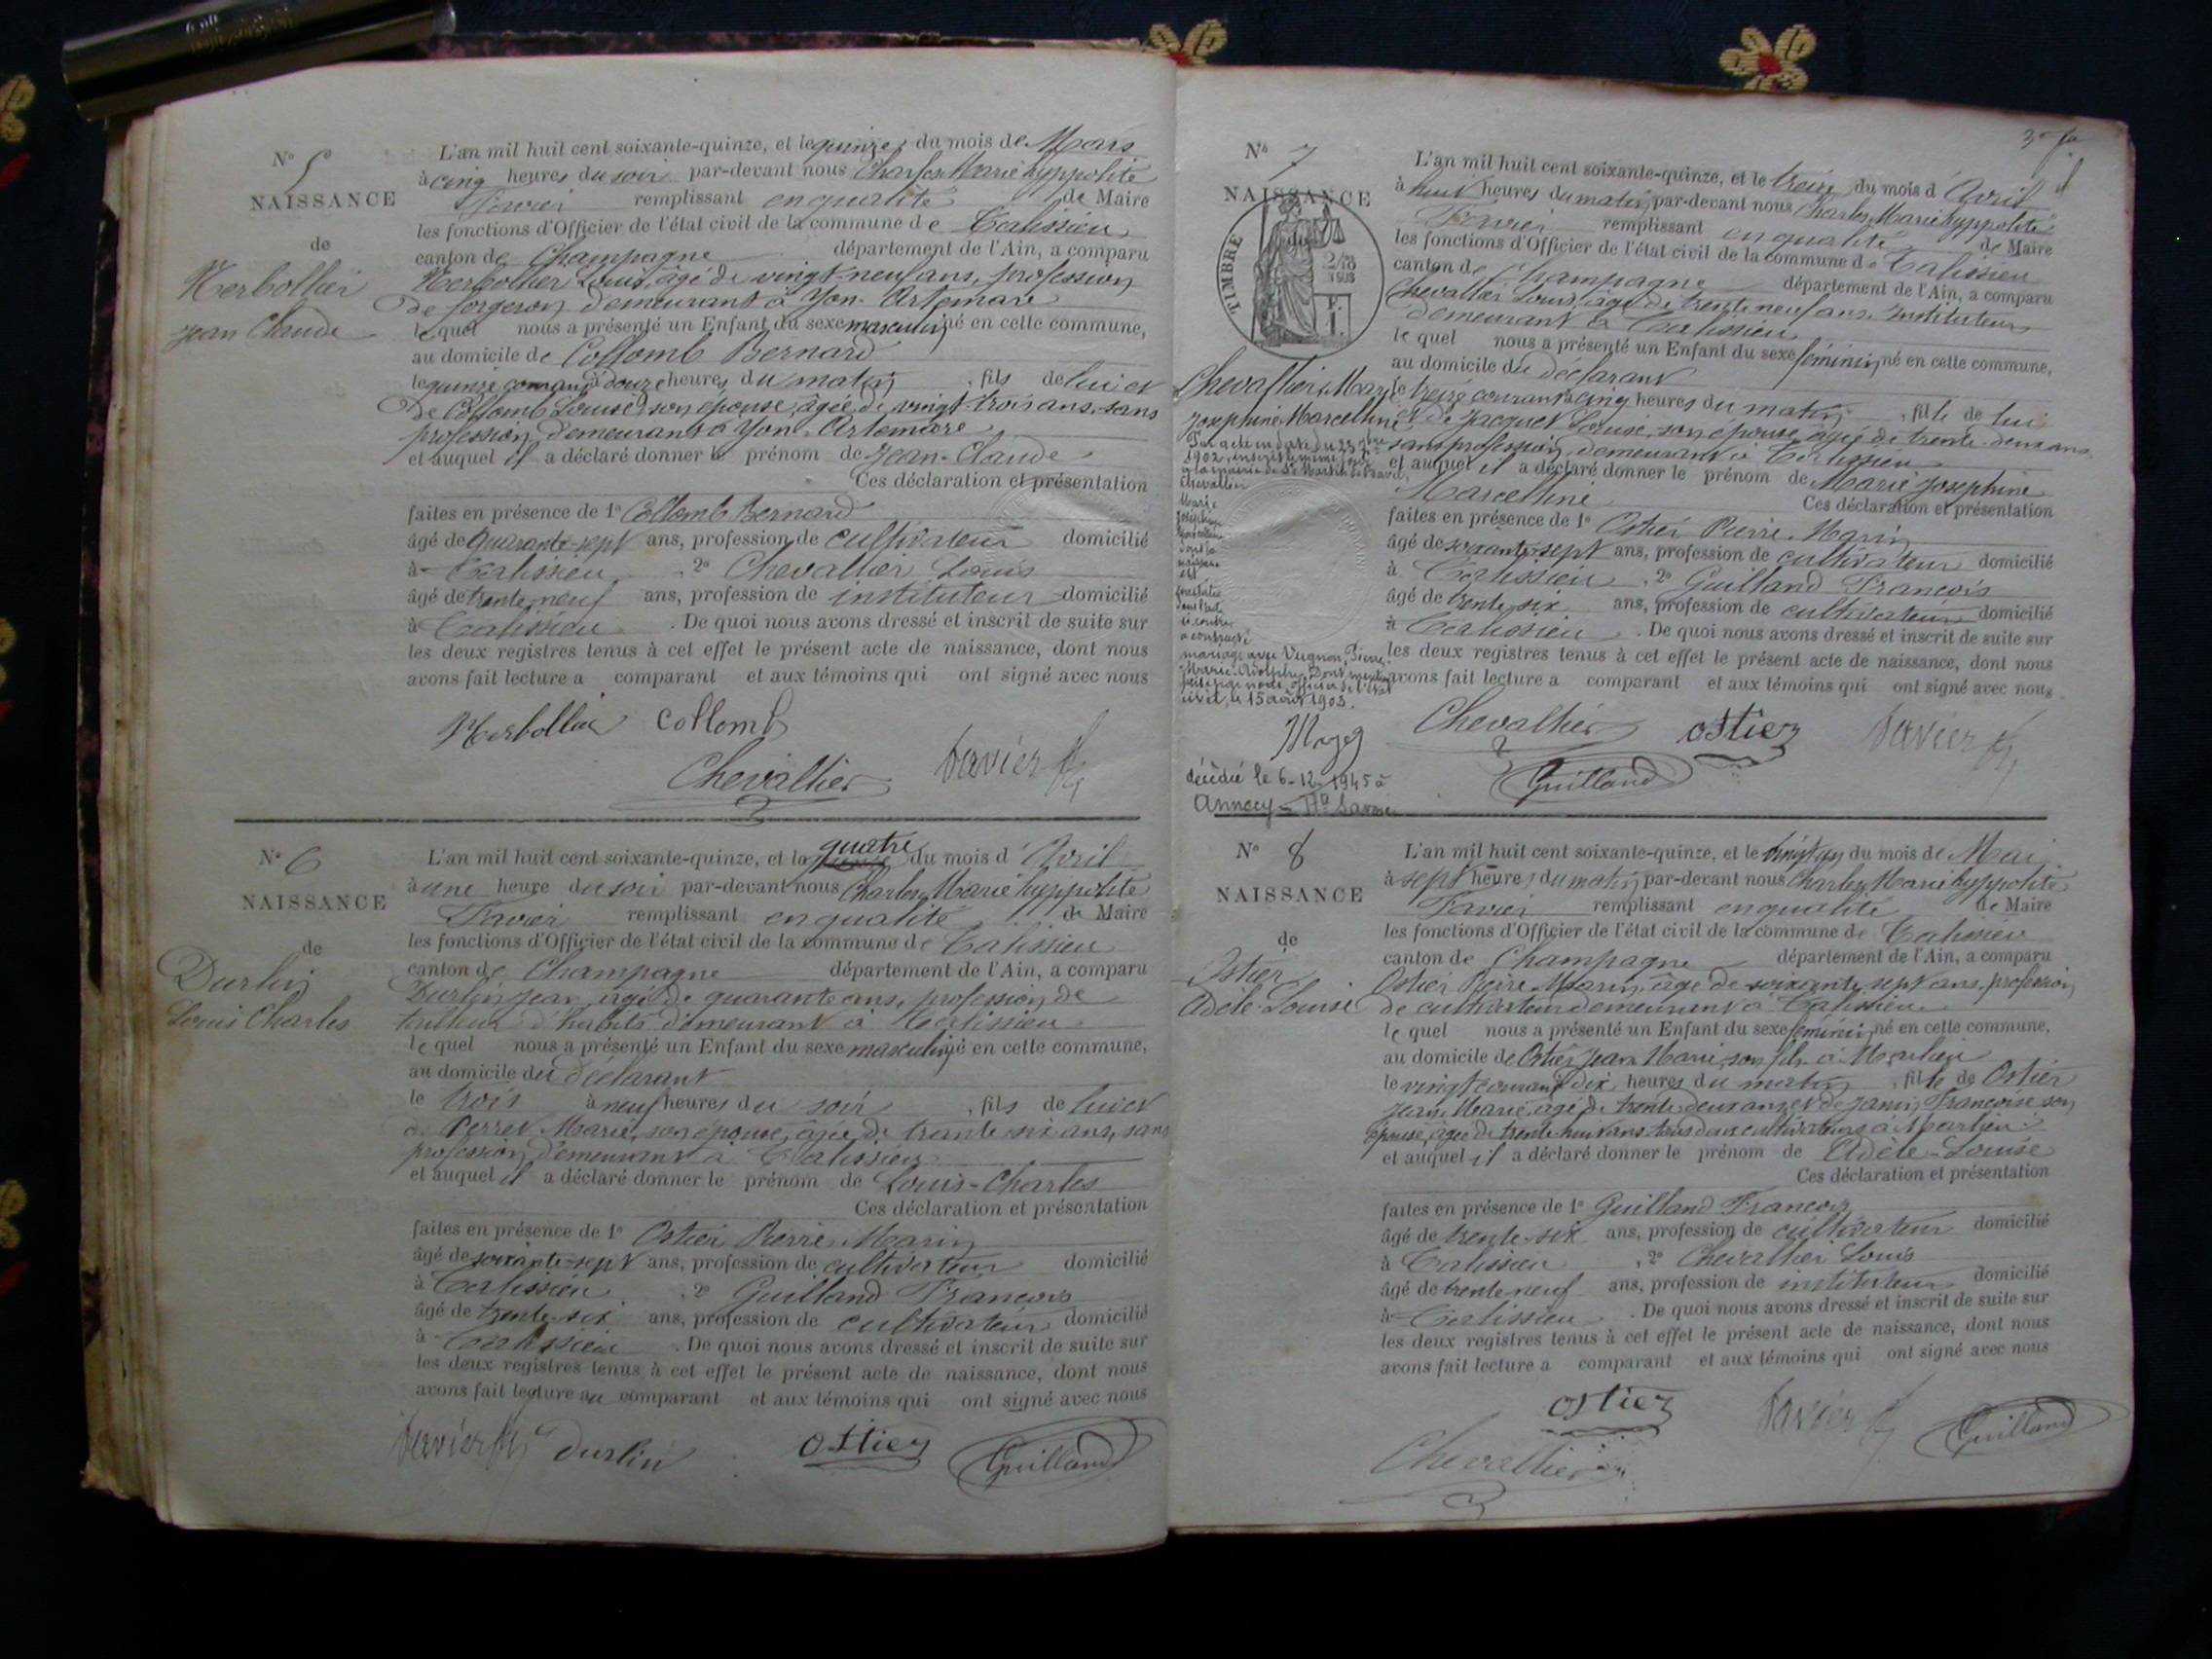 N° 5
NAISSANCE
de
Herbollier
Jean Claude
L'an mil huit cent soixante-quinze, et le quinze du mois de Mars
à cinq heures du soir par-devant nous Charles Marie hyppolite
Favier remplissant en qualité de Maire
les fonctions d'Officier de l'état civil de la commune de Talissieu
canton de Champagne département de l'Ain, a comparu
Herbollier Louis, âgé de vingt-neuf ans, profession
de forgeron demeurant à Yon-Artemare
lequel nous a présenté un Enfant du sexe masculin né en cette commune,
au domicile de Collomb Bernard
le quinze courant à douze heures du matin, fils de lui et
de Collomb Louise son épouse, âgée de vingt-trois ans, sans
profession, demeurant à Yon-Artemare
et auquel il a déclaré donner le prénom de Jean-Claude
Ces déclaration et présentation
faites en présence de 1° Collomb Bernard
âgé de quarante-sept ans, profession de cultivateur domicilié
à Talissieu, 2° Chevallier Louis
âgé de trente neuf ans, profession de instituteur domicilié
à Talissieu. De quoi nous avons dressé et inscrit de suite sur
les deux registres tenus à cet effet le présent acte de naissance, dont nous
avons fait lecture a comparant et aux témoins qui ont signé avec nous
Herbollier Collomb
Chevallier Favier
N° 6
NAISSANCE
de
Durlin
Louis Charles
L'an mil huit cent soixante-quinze, et le quatre du mois d'Avril
à une heure du soir par-devant nous Charles Marie hyppolite
Favier remplissant en qualité de Maire
les fonctions d'Officier de l'état civil de la commune de Talissieu
canton de Champagne département de l'Ain, a comparu
Durlin Jean, âgé de quarante ans, profession de
tailleur d'habits demeurant à Talissieu
lequel nous a présenté un Enfant du sexe masculin né en cette commune,
au domicile du déclarant
le trois à neuf heures du soir, fils de lui et
de Perret Marie, son épouse, âgée de trente-six ans, sans
profession, demeurant à Talissieu
et auquel il a déclaré donner le prénom de Louis-Charles
Ces déclaration et présentation
faites en présence de 1° Ostier Pierre Marin
âgé de soixante-sept ans, profession de cultivateur domicilié
à Talissieu, 2° Guilland François
âgé de trente-six ans, profession de cultivateur domicilié
à Talissieu. De quoi nous avons dressé et inscrit de suite sur
les deux registres tenus à cet effet le présent acte de naissance, dont nous
avons fait lecture au comparant et aux témoins qui ont signé avec nous
Favier Durlin Ostier Guilland
N° 7
NAISSANCE
de
TIMBRE
Chevallier Marie
Josephine Marcelline
L'an mil huit cent soixante-quinze, et le treize du mois d'Avril
à huit heures du matin, par-devant nous Charles Marie hyppolite
Favier remplissant en qualité de Maire
les fonctions d'Officier de l'état civil de la commune de Talissieu
canton de Champagne département de l'Ain, a comparu
Chevallier Louis, âgé de trente neuf ans, instituteur
demeurant à Talissieu
lequel nous a présenté un Enfant du sexe féminin né en cette commune,
au domicile du déclarant
le treize courant à cinq heures du matin, fille de lui
et de Jacquet Louise, son épouse, âgée de trente-deux ans
sans profession, demeurant à Talissieu
et auquel il a déclaré donner le prénom de Marie Josephine
Marcelline Ces déclaration et présentation
faites en présence de 1° Ostier Pierre Marin
âgé de soixante-sept ans, profession de cultivateur domicilié
à Talissieu, 2° Guilland François
âgé de trente-six ans, profession de cultivateur domicilié
à Talissieu. De quoi nous avons dressé et inscrit de suite sur
les deux registres tenus à cet effet le présent acte de naissance, dont nous
avons fait lecture a comparant et aux témoins qui ont signé avec nous
Chevallier Ostier Favier
Guilland
Chevallier
Marie
Joséphine
Marcelline
dont la
naissance
est
constatée
dans l'acte
ci-contre
a contracté
mariage avec Vugnon, Pierre
Marie Adolphe. Dont mention
civil, le 15 août 1903.
décédée le 6-12-1945 à
Annecy - Hte Savoie
N° 8
NAISSANCE
de
Ostier
Adèle-Louise
L'an mil huit cent soixante-quinze, et le du mois de Mai
à sept heures du matin par-devant nous Charles Marie hyppolite
Favier remplissant en qualité de Maire
les fonctions d'Officier de l'état civil de la commune de Talissieu
canton de Champagne département de l'Ain, a comparu
Ostier Pierre Marin, âgé de soixante sept ans, profession
de cultivateur demeurant à Talissieu
lequel nous a présenté un Enfant du sexe féminin né en cette commune,
au domicile de Ostier Jean Marie, son fils à Marlieu
le vingt courant à dix heures du matin, fille de Ostier
Jean Marie, âgé de trente deux ans et de Janin Françoise son
épouse, âgée de trente-huit ans, tous deux cultivateurs à Marlieu
et auquel il a déclaré donner le prénom de Adèle-Louise
Ces déclaration et présentation
faites en présence de 1° Guilland François
âgé de trente-six ans, profession de cultivateur domicilié
à Talissieu, 2° Chevallier Louis
âgé de trente neuf ans, profession de instituteur domicilié
à Talissieu. De quoi nous avons dressé et inscrit de suite sur
les deux registres tenus à cet effet le présent acte de naissance, dont nous
avons fait lecture a comparant et aux témoins qui ont signé avec nous
Ostier Favier Guilland
Chevallier